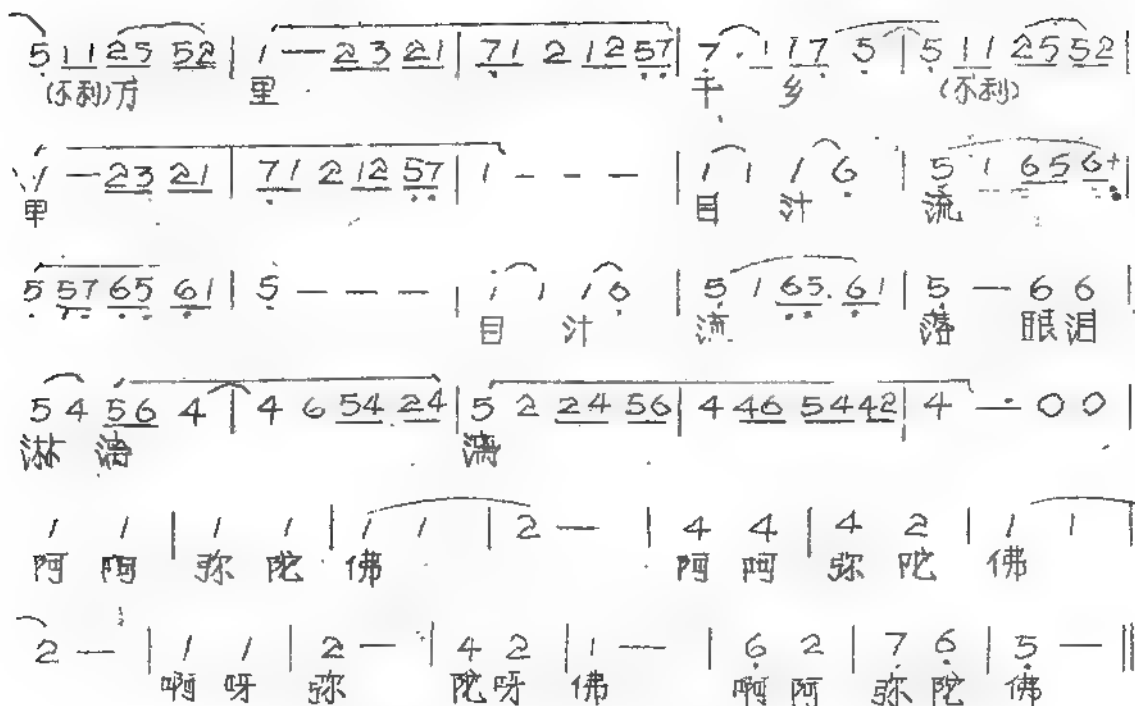 5 11 25 52 | 1 — 23 21 | 71 2 12 57 | 7 . 1 17 5 | 5 11 25 52 |
(不利)方 里 千 乡 (不利)
1 — 23 21 | 71 2 12 57 | 1 — — — | 1 1 1 6 | 5 1 65 6
里 目 汁 流
5 57 65 61 | 5 — — — | 1 1 1 6 | 5 1 65. 61 | 5 — 6 6 |
目 汁 流 落 眼泪
5 4 56 4 | 4 6 54 24 | 5 2 24 56 | 4 46 54 42 | 4 — · 0 0 |
淋 漓 漓
1 1 | 1 1 | 1 1 | 2 — | 4 4 | 4 2 | 1 1 |
阿 阿 弥 陀 佛 阿 呵 弥 陀 佛
2 — | 1 1 | 2 — | 4 2 | 1 — | 6 2 | 7 6 | 5 — ‖
啊 呀 弥 陀 呀 佛 啊 阿 弥 陀 佛